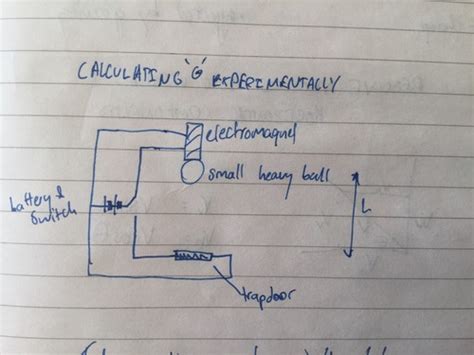 CALCULATING 'G' EXPERIMENTALLY
electromagnet
small heavy ball
battery &
switch
h
trapdoor